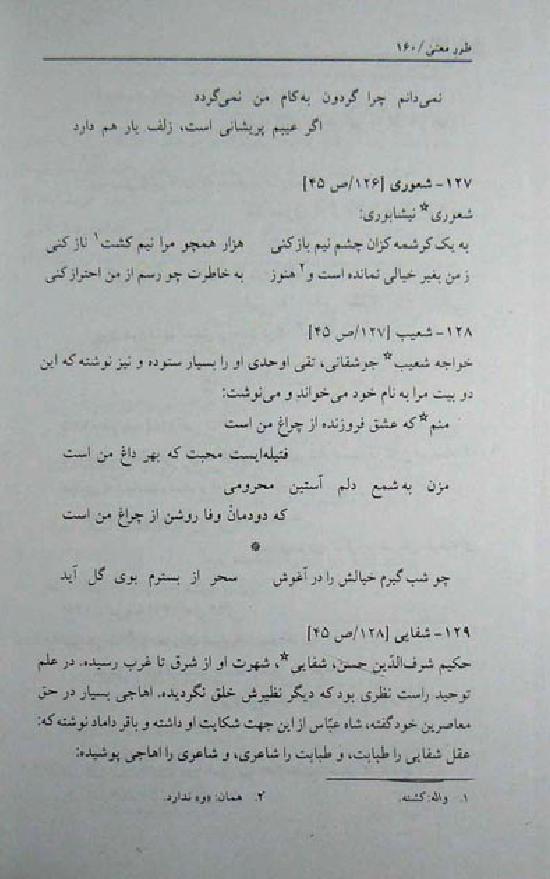 طور معنی / ۱۶۰
نمی‌دانم چرا گردون به‌کام من نمی‌گردد
اگر عیبم پریشانی است، زلف یار هم دارد
۱۲۷- شعوری [۱۲۶/ص ۴۵]
شعوری* نیشابوری:
به یک کرشمه کزان چشم نیم باز کنی هزار همچو مرا نیم کشت۱ ناز کنی
ز من بغیر خیالی نمانده است و۲ هنوز به خاطرت چو رسم از من احتراز کنی
۱۲۸- شعیب [۱۲۷/ص ۴۵]
خواجه شعیب* جوشقانی، تقی اوحدی او را بسیار ستوده و نیز نوشته که این
دو بیت مرا به نام خود می‌خواند و می‌نوشت:
منم* که عشق فروزنده از چراغ من است
فتیله‌ایست محبت که بهر داغ من است
مزن به‌شمع دلم آستین محرومی
که دودمانْ وفا روشن از چراغ من است
*
چو شب گیرم خیالش را در آغوش سحر از بسترم بوی گل آید
۱۲۹- شفایی [۱۲۸/ص ۴۵]
حکیم شرف‌الدّین حسن، شفایی*، شهرت او از شرق تا غرب رسیده. در علم
توحید راست نظری بود که دیگر نظیرش خلق نگردیده. اهاجی بسیار در حق
معاصرین خود گفته، شاه عبّاس از این جهت شکایت او داشته و باقر داماد نوشته که:
عقل شفایی را طبابت، و طبابت را شاعری، و شاعری را اهاجی پوشیده:
۱. واله: کشته. ۲. همان: «و» ندارد.